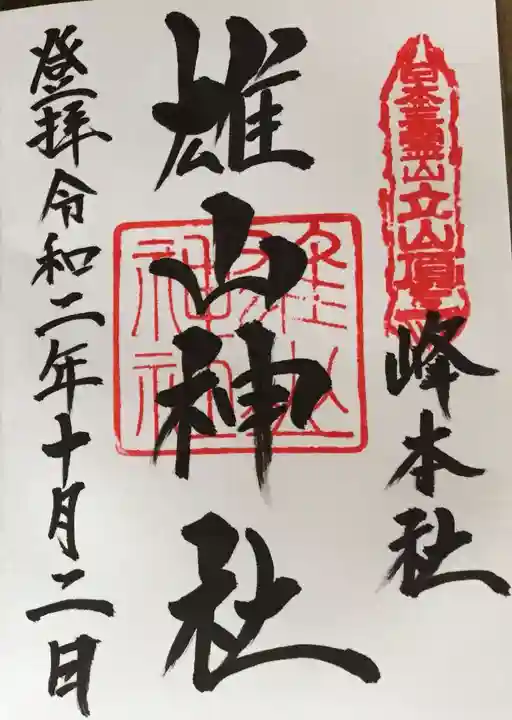 日本三霊山立山頂上
峰本社
雄山神社
雄山神社
登拝令和二年十月二日